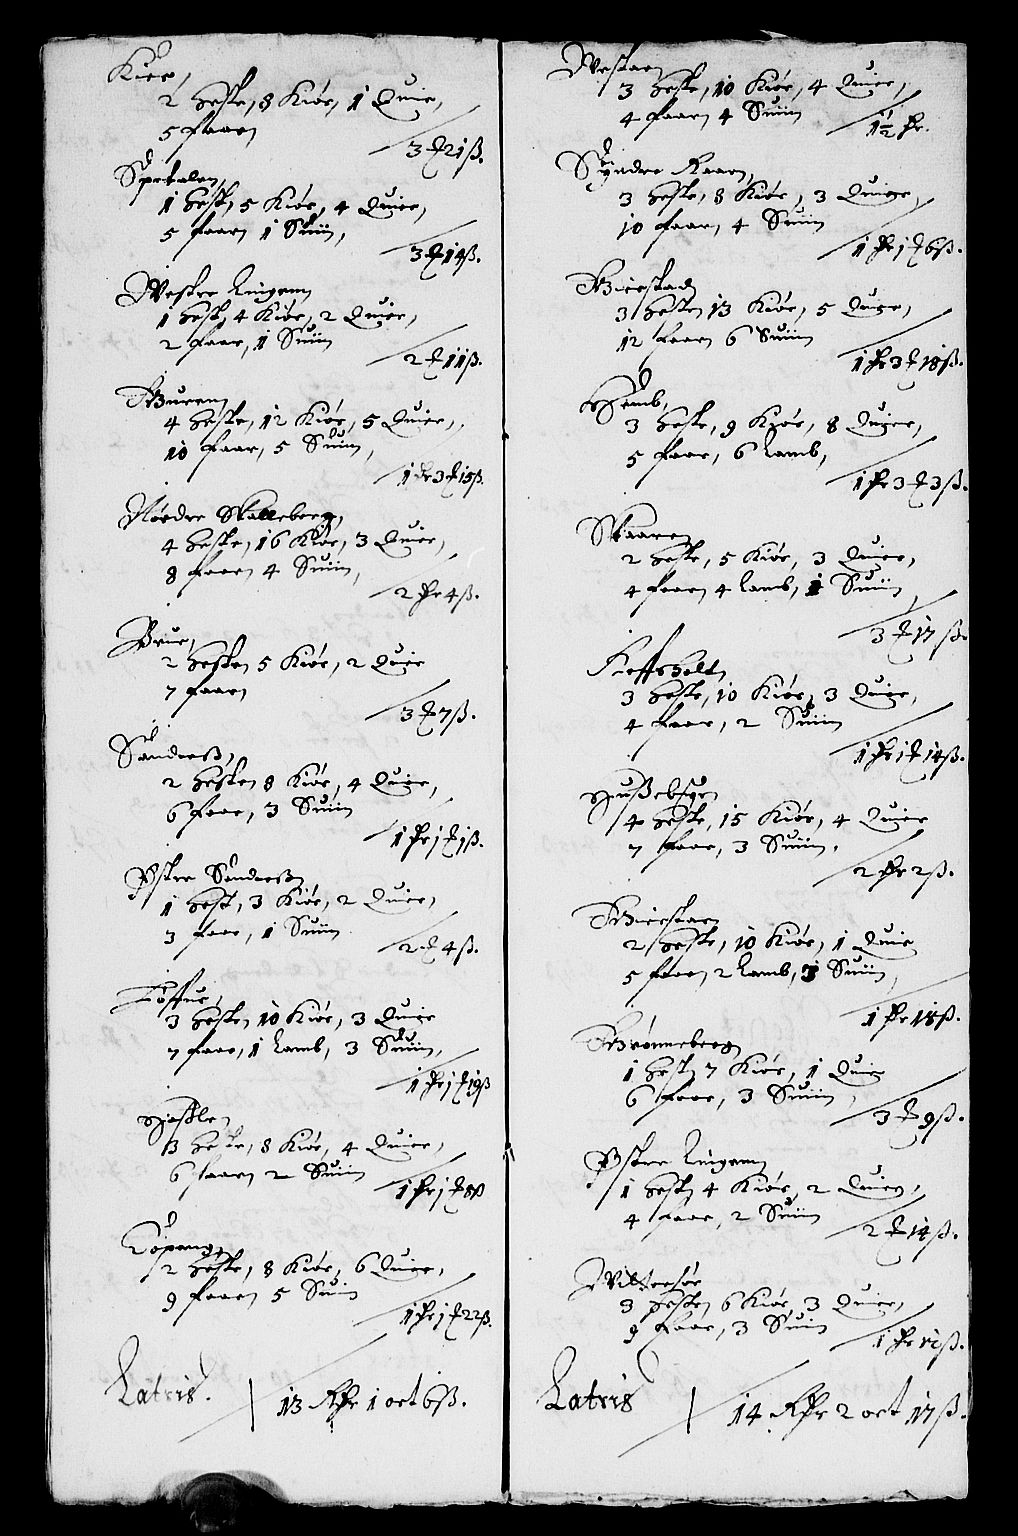 Kiær,
2 heste, 8 Kiør, 1 Quie,
5 faar
3 ort 21 ß.
Spetalen,
1 hest, 5 Kiør, 4 Quier,
5 faar 1 Suiin,
3 ort 14 ß.
Westre Lingem
1 hest 4 Kiør, 2 Quier,
2 faar, 1 Suiin
2 ort 11 ß.
Burem
4 heste, 12 Kiør, 5 Quier,
10 faar, 5 Suiin,
1 dr 3 ort 15 ß.
Nordre Skalleberg,
4 heste, 16 Kiør, 3 Quier,
8 faar 4 Suiin,
2 dr 4 ß.
Brue,
2 heste 5 Kiør, 2 Quie
7 faar
3 ort 7 ß.
Sanderß,
2 heste 8 Kiør, 4 Quie,
6 faar, 3 Suiin
1 dr 1 ort 1 ß.
Østre Sanderß
1 hest, 3 Kiør, 2 Quier,
3 faar, 1 Suiin
2 ort 4 ß.
Toffue,
3 heste, 10 Kiør, 3 Quie
7 faar, 1 Lamb, 3 Suiin,
1 dr 1 ort 19 ß
Heßle
3 heste, 8 Kiør, 4 Quier,
6 faar 2 Suiin
1 dr 1 ort 8 ß
Topang,
2 heste, 8 Kiør, 6 Quie,
9 faar 5 Suin
1 dr 1 ort 22 ß.
Latris.
13 Rdr 1 ort 6 ß.
3 heste, 10 Kiør, 4 Quier,
4 faar 4 Suiin
1½ dr.
Syndre Raae,
3 heste, 8 Kiør, 3 Quier,
10 faar, 4 Suiin
1 dr 1 ort 6 ß.
Bierstad
3 heste, 13 Kiør, 5 Quier,
12 faar 6 Suiin
1 dr 3 ort 18 ß.
Hemb,
3 heste, 9 Kiør, 8 Quier,
5 faar, 6 Lamb,
1 dr 3 ort 3 ß.
Skaare
2 heste, 5 Kiør, 3 Quier,
4 faar 4 Lamb, 1 Suiin
3 ort 17 ß.
3 heste, 10 Kiør, 3 Quier,
4 faar, 2 Suiin
1 dr 1 ort 14 ß.
Hußebye
4 heste, 15 Kiør, 4 Quier
7 faar, 3 Suiin,
2 dr 2 ß.
2 heste, 10 Kiør, 1 Quie
5 faar 2 Lamb, 3 Suiin,
1 dr 18 ß.
Brønneberg
1 hest 7 Kiør, 1 Quie
6 faar, 3 Suiin,
3 ort 9 ß.
Østre Lingem
1 hest 4 Kiør, 2 Quie,
4 faar, 2 Suiin
2 ort 14 ß.
3 heste 6 Kiør, 3 Quier,
9 faar, 3 Suin
Latris
14 Rdr 2 ort 17 ß.